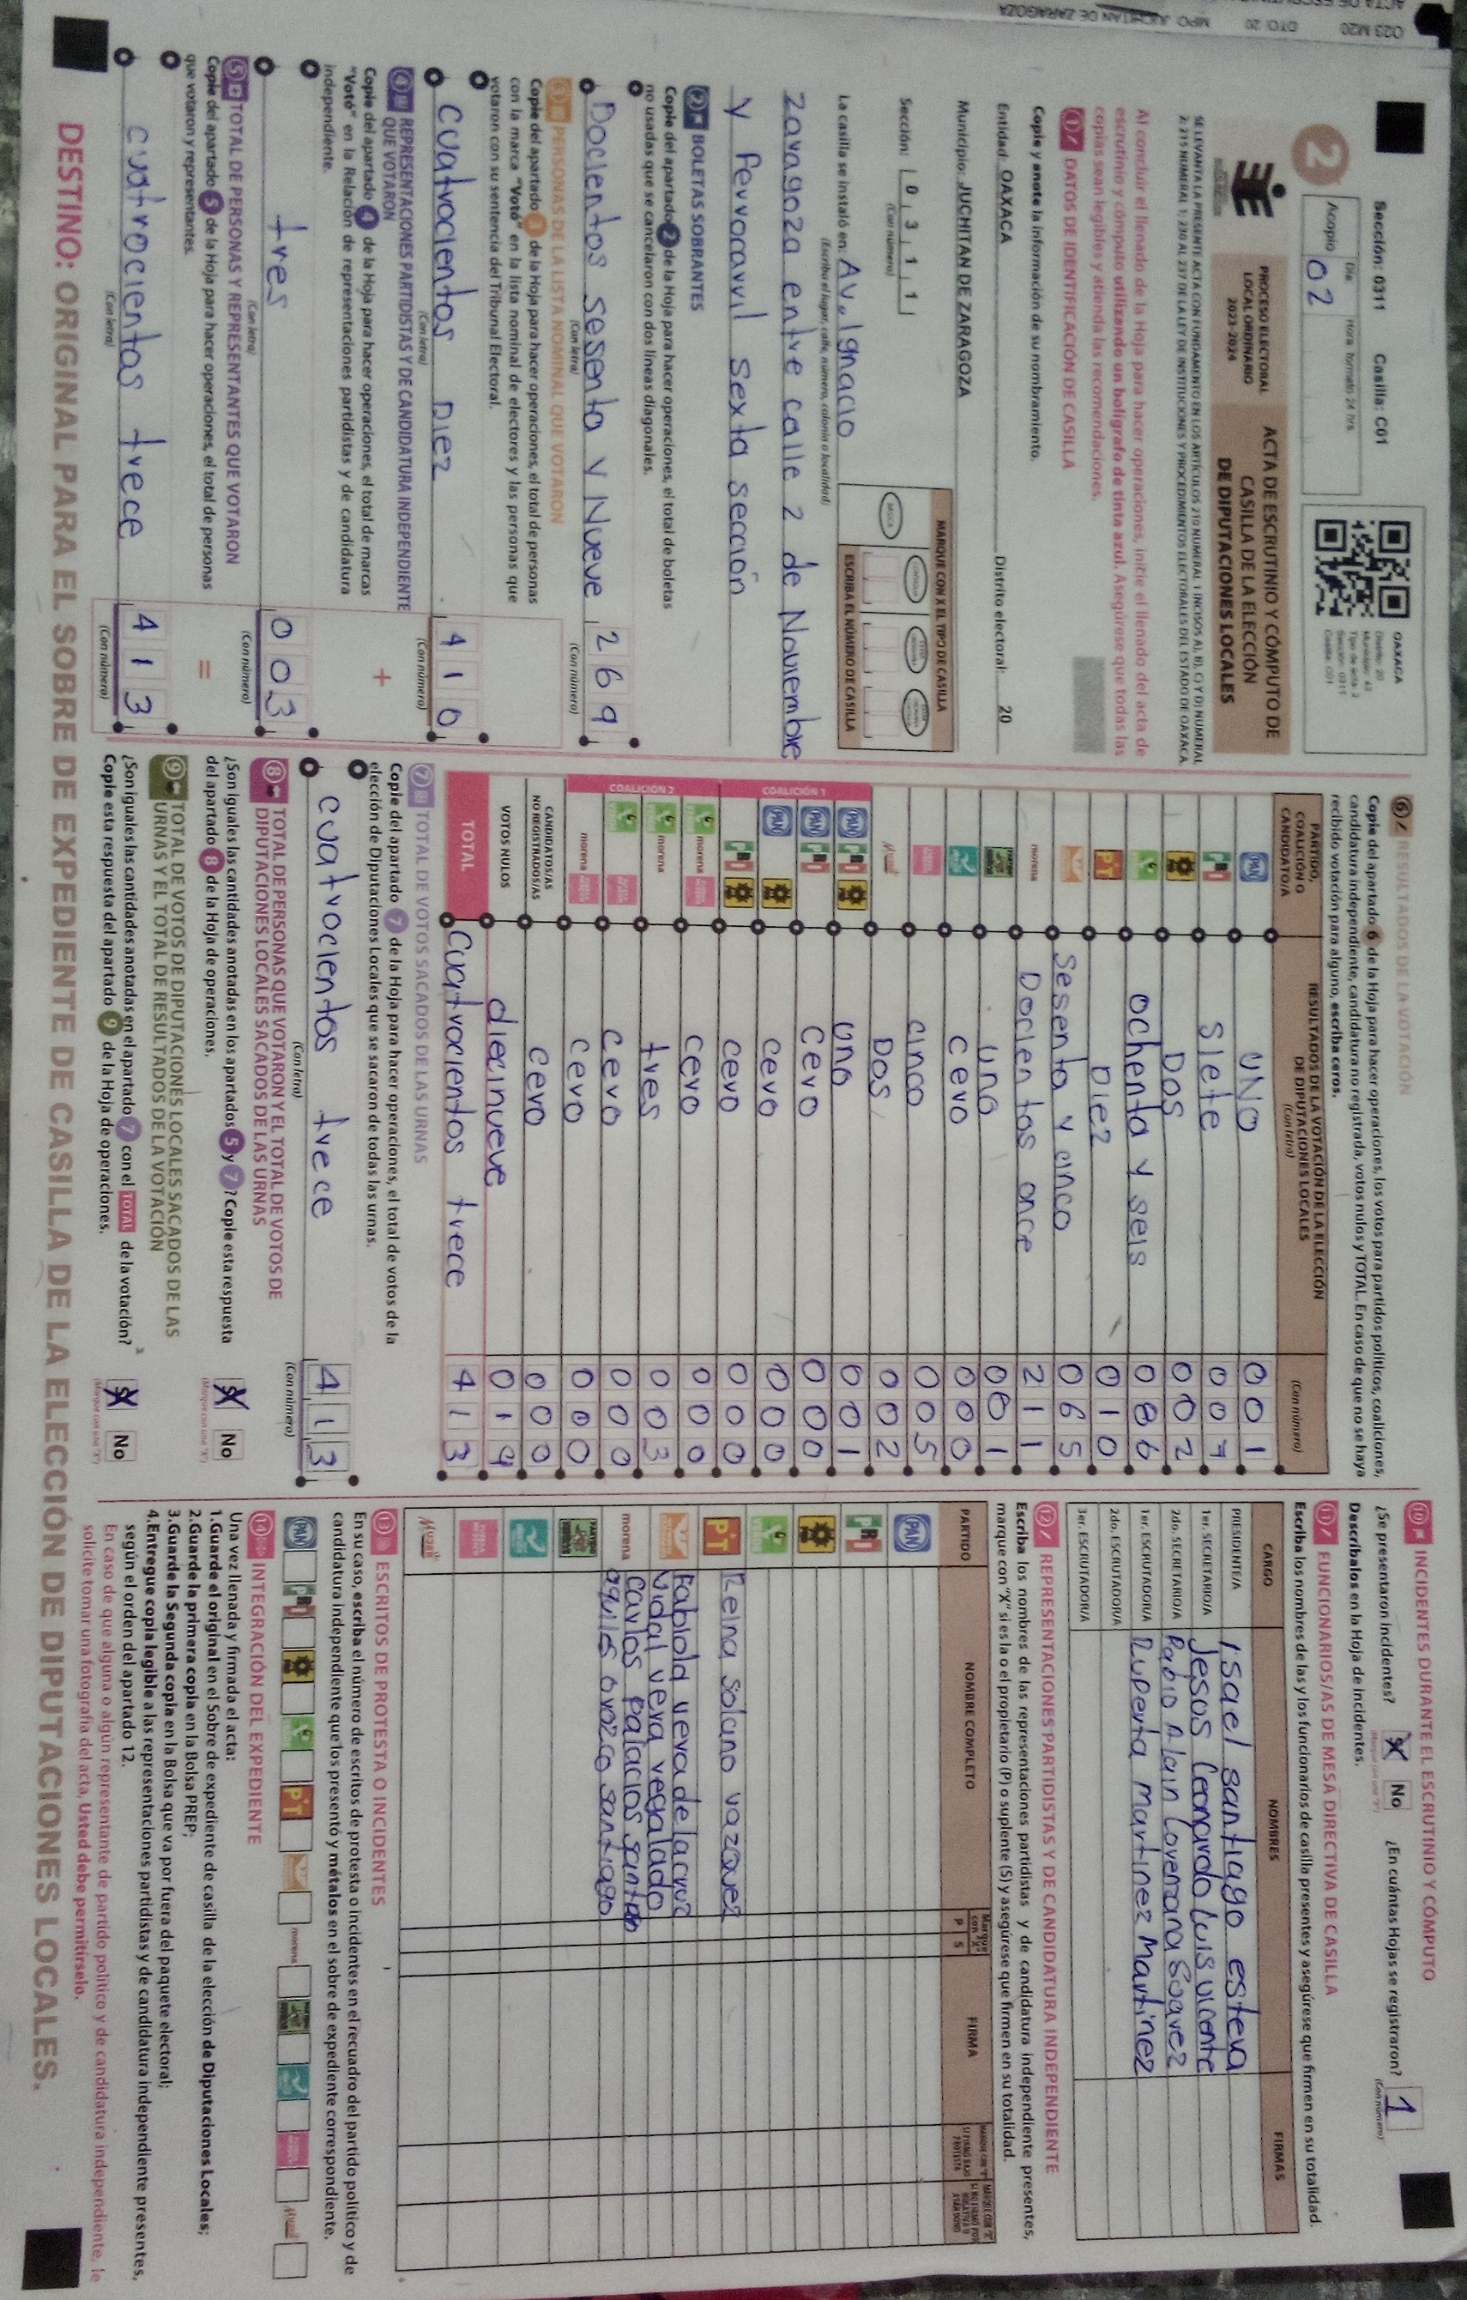 Sección: 0311 Casilla: C01
2
Acopio
Día Hora formato 24 hrs.
02
OAXACA
Distrito: 20
Municipio: 43
Tipo de acta: 2
Sección: 0311
Casilla: C01
PROCESO ELECTORAL
LOCAL ORDINARIO
2023-2024
ACTA DE ESCRUTINIO Y CÓMPUTO DE
CASILLA DE LA ELECCIÓN
DE DIPUTACIONES LOCALES
SE LEVANTA LA PRESENTE ACTA CON FUNDAMENTO EN LOS ARTÍCULOS 219 NUMERAL 1 INCISOS A), B), C) Y D) NUMERAL
2; 215 NUMERAL 1; 230 AL 237 DE LA LEY DE INSTITUCIONES Y PROCEDIMIENTOS ELECTORALES DEL ESTADO DE OAXACA.
Al concluir el llenado de la Hoja para hacer operaciones, inicie el llenado del acta de
escrutinio y cómputo utilizando un bolígrafo de tinta azul. Asegúrese que todas las
copias sean legibles y atienda las recomendaciones.
1 DATOS DE IDENTIFICACIÓN DE CASILLA
Copie y anote la información de su nombramiento.
Entidad: OAXACA Distrito electoral: 20
Municipio: JUCHITAN DE ZARAGOZA
Sección: 0 3 1 1
(Con número)
MARQUE CON X EL TIPO DE CASILLA
ESCRIBA EL NÚMERO DE CASILLA
La casilla se instaló en: Av. Ignacio
(Escriba el lugar, calle, número, colonia o localidad)
Zaragoza entre calle 2 de Noviembre
y Ferrocarril sexta sección
2 BOLETAS SOBRANTES
Copie del apartado 2 de la Hoja para hacer operaciones, el total de boletas
no usadas que se cancelaron con dos líneas diagonales.
Docientos sesenta y Nueve 2 6 9
(Con letra) (Con número)
3 PERSONAS DE LA LISTA NOMINAL QUE VOTARON
Copie del apartado 3 de la Hoja para hacer operaciones, el total de personas
con la marca "Votó" en la lista nominal de electores y las personas que
votaron con su sentencia del Tribunal Electoral.
cuatrocientos Diez 4 1 0
(Con letra) (Con número)
4 REPRESENTACIONES PARTIDISTAS Y DE CANDIDATURA INDEPENDIENTE
QUE VOTARON
Copie del apartado 4 de la Hoja para hacer operaciones, el total de marcas
"Votó" en la Relación de representaciones partidistas y de candidatura
independiente.
+
tres 0 0 3
(Con letra) (Con número)
5 TOTAL DE PERSONAS Y REPRESENTANTES QUE VOTARON
Copie del apartado 5 de la Hoja para hacer operaciones, el total de personas
que votaron y representantes.
=
cuatrocientos trece 4 1 3
(Con letra) (Con número)
6 RESULTADOS DE LA VOTACIÓN
Copie del apartado 6 de la Hoja para hacer operaciones, los votos para partidos políticos, coaliciones,
candidatura independiente, candidatura no registrada, votos nulos y TOTAL. En caso de que no se haya
recibido votación para alguno, escriba ceros.
PARTIDO,
COALICIÓN O
CANDIDATO/A
RESULTADOS DE LA VOTACIÓN DE LA ELECCIÓN
DE DIPUTACIONES LOCALES
(Con letra) (Con número)
PAN UNO 0 0 1
PRI Siete 0 0 7
Dos 0 0 2
ochenta y seis 0 8 6
PT Diez 0 1 0
sesenta y cinco 0 6 5
morena Docientos once 2 1 1
uno 0 0 1
cero 0 0 0
cinco 0 0 5
Mujer Dos 0 0 2
COALICIÓN 1
PAN PRI uno 0 0 1
PAN PRI cero 0 0 0
PAN cero 0 0 0
PRI cero 0 0 0
COALICIÓN 2
morena cero 0 0 0
morena tres 0 0 3
cero 0 0 0
morena cero 0 0 0
CANDIDATOS/AS
NO REGISTRADOS/AS cero 0 0 0
VOTOS NULOS diecinueve 0 1 9
TOTAL cuatrocientos trece 4 1 3
7 TOTAL DE VOTOS SACADOS DE LAS URNAS
Copie del apartado 7 de la Hoja para hacer operaciones, el total de votos de la
elección de Diputaciones Locales que se sacaron de todas las urnas.
cuatrocientos trece 4 1 3
(Con letra) (Con número)
8 TOTAL DE PERSONAS QUE VOTARON Y EL TOTAL DE VOTOS DE
DIPUTACIONES LOCALES SACADOS DE LAS URNAS
¿Son iguales las cantidades anotadas en los apartados 5 y 7? Copie esta respuesta
del apartado 8 de la Hoja de operaciones.
Sí No
(Marque con una "X")
9 TOTAL DE VOTOS DE DIPUTACIONES LOCALES SACADOS DE LAS
URNAS Y EL TOTAL DE RESULTADOS DE LA VOTACIÓN
¿Son iguales las cantidades anotadas en el apartado 7 con el TOTAL de la votación?
Copie esta respuesta del apartado 9 de la Hoja de operaciones.
Sí No
(Marque con una "X")
10 INCIDENTES DURANTE EL ESCRUTINIO Y CÓMPUTO
¿Se presentaron incidentes? Sí No ¿En cuántas Hojas se registraron? 1
(Marque con una "X") (Con número)
Descríbalos en la Hoja de incidentes.
11 FUNCIONARIOS/AS DE MESA DIRECTIVA DE CASILLA
Escriba los nombres de las y los funcionarios de casilla presentes y asegúrese que firmen en su totalidad.
CARGO NOMBRES FIRMAS
PRESIDENTE/A Isael santiago esteva
1er. SECRETARIO/A Jesus Leonardo Luis vicente
2do. SECRETARIO/A
1er. ESCRUTADOR/A Ruperta Martinez Martinez
2do. ESCRUTADOR/A
3er. ESCRUTADOR/A
12 REPRESENTACIONES PARTIDISTAS Y DE CANDIDATURA INDEPENDIENTE
Escriba los nombres de las representaciones partidistas y de candidatura independiente presentes,
marque con "X" si es la o el propietario (P) o suplente (S) y asegúrese que firmen en su totalidad.
PARTIDO NOMBRE COMPLETO Marque con "X" P S FIRMA
PAN
PRI
PT Reina solano vazquez
Fabiola nera de la cruz
vidal vera vegalado
morena carlos palacios santiago
aquiles orozco santiago
Mujer
13 ESCRITOS DE PROTESTA O INCIDENTES
En su caso, escriba el número de escritos de protesta o incidentes en el recuadro del partido político y de
candidatura independiente que los presentó y métalos en el sobre de expediente correspondiente.
PAN PRI PT morena Mujer
14 INTEGRACIÓN DEL EXPEDIENTE
Una vez llenada y firmada el acta:
1.Guarde el original en el Sobre de expediente de casilla de la elección de Diputaciones Locales;
2.Guarde la primera copia en la Bolsa PREP;
3.Guarde la Segunda copia en la Bolsa que va por fuera del paquete electoral;
4.Entregue copia legible a las representaciones partidistas y de candidatura independiente presentes,
según el orden del apartado 12.
En caso de que alguna o algún representante de partido político y de candidatura independiente, le
solicite tomar una fotografía del acta, Usted debe permitírselo.
DESTINO: ORIGINAL PARA EL SOBRE DE EXPEDIENTE DE CASILLA DE LA ELECCIÓN DE DIPUTACIONES LOCALES.